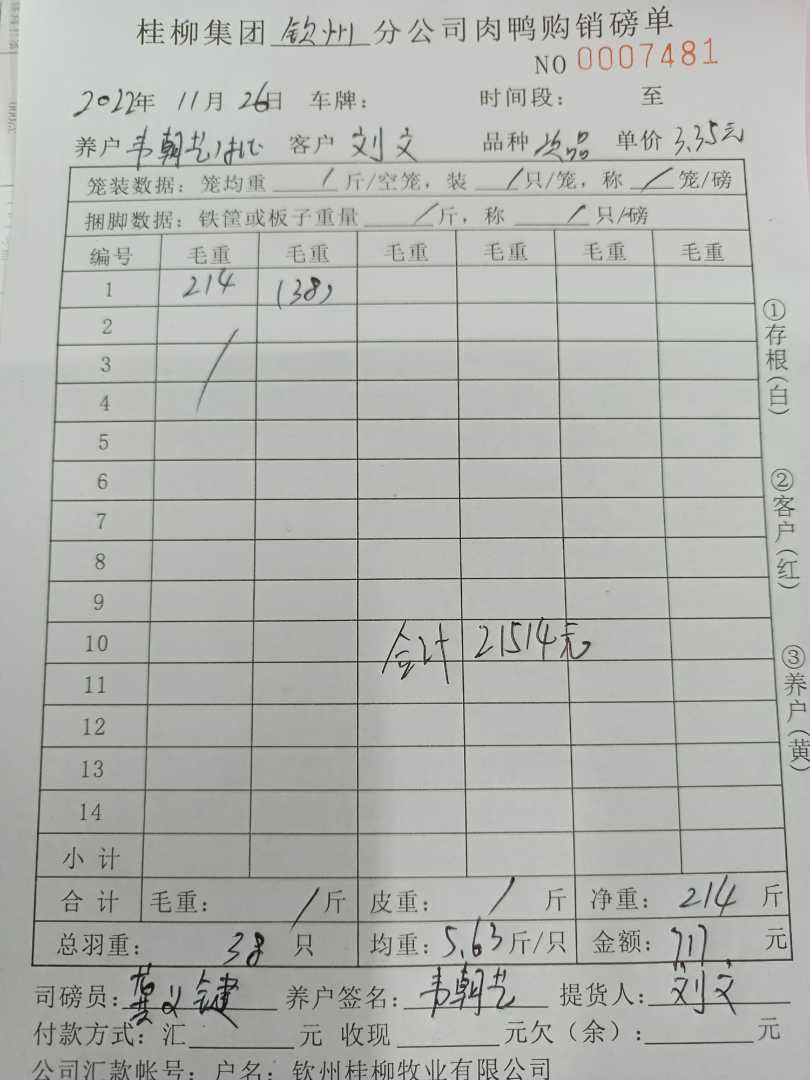 桂柳集团 钦州 分公司肉鸭购销磅单
NO 0007481
2022年 11月 26日 车牌： 时间段： 至
养户 韦朝艺 客户 刘文 品种 次品 单价 3.35元
笼装数据：笼均重 / 斤/空笼，装 / 只/笼，称 / 笼/磅
捆脚数据：铁筐或板子重量 / 斤，称 / 只/磅
编号 毛重 毛重 毛重 毛重 毛重 毛重
1 214 (38)
2
3 /
4
5
6
7
8
9
10 合计 21514元
11
12
13
14
小计
合计 毛重： / 斤 皮重： / 斤 净重： 214 斤
总羽重： 38 只 均重：5.63斤/只 金额：717 元
司磅员：黄义键 养户签名：韦朝艺 提货人：刘文
付款方式：汇 元 收现 元欠（余）： 元
公司汇款帐号：户名：钦州桂柳牧业有限公司
①存根（白）
②客户（红）
③养户（黄）